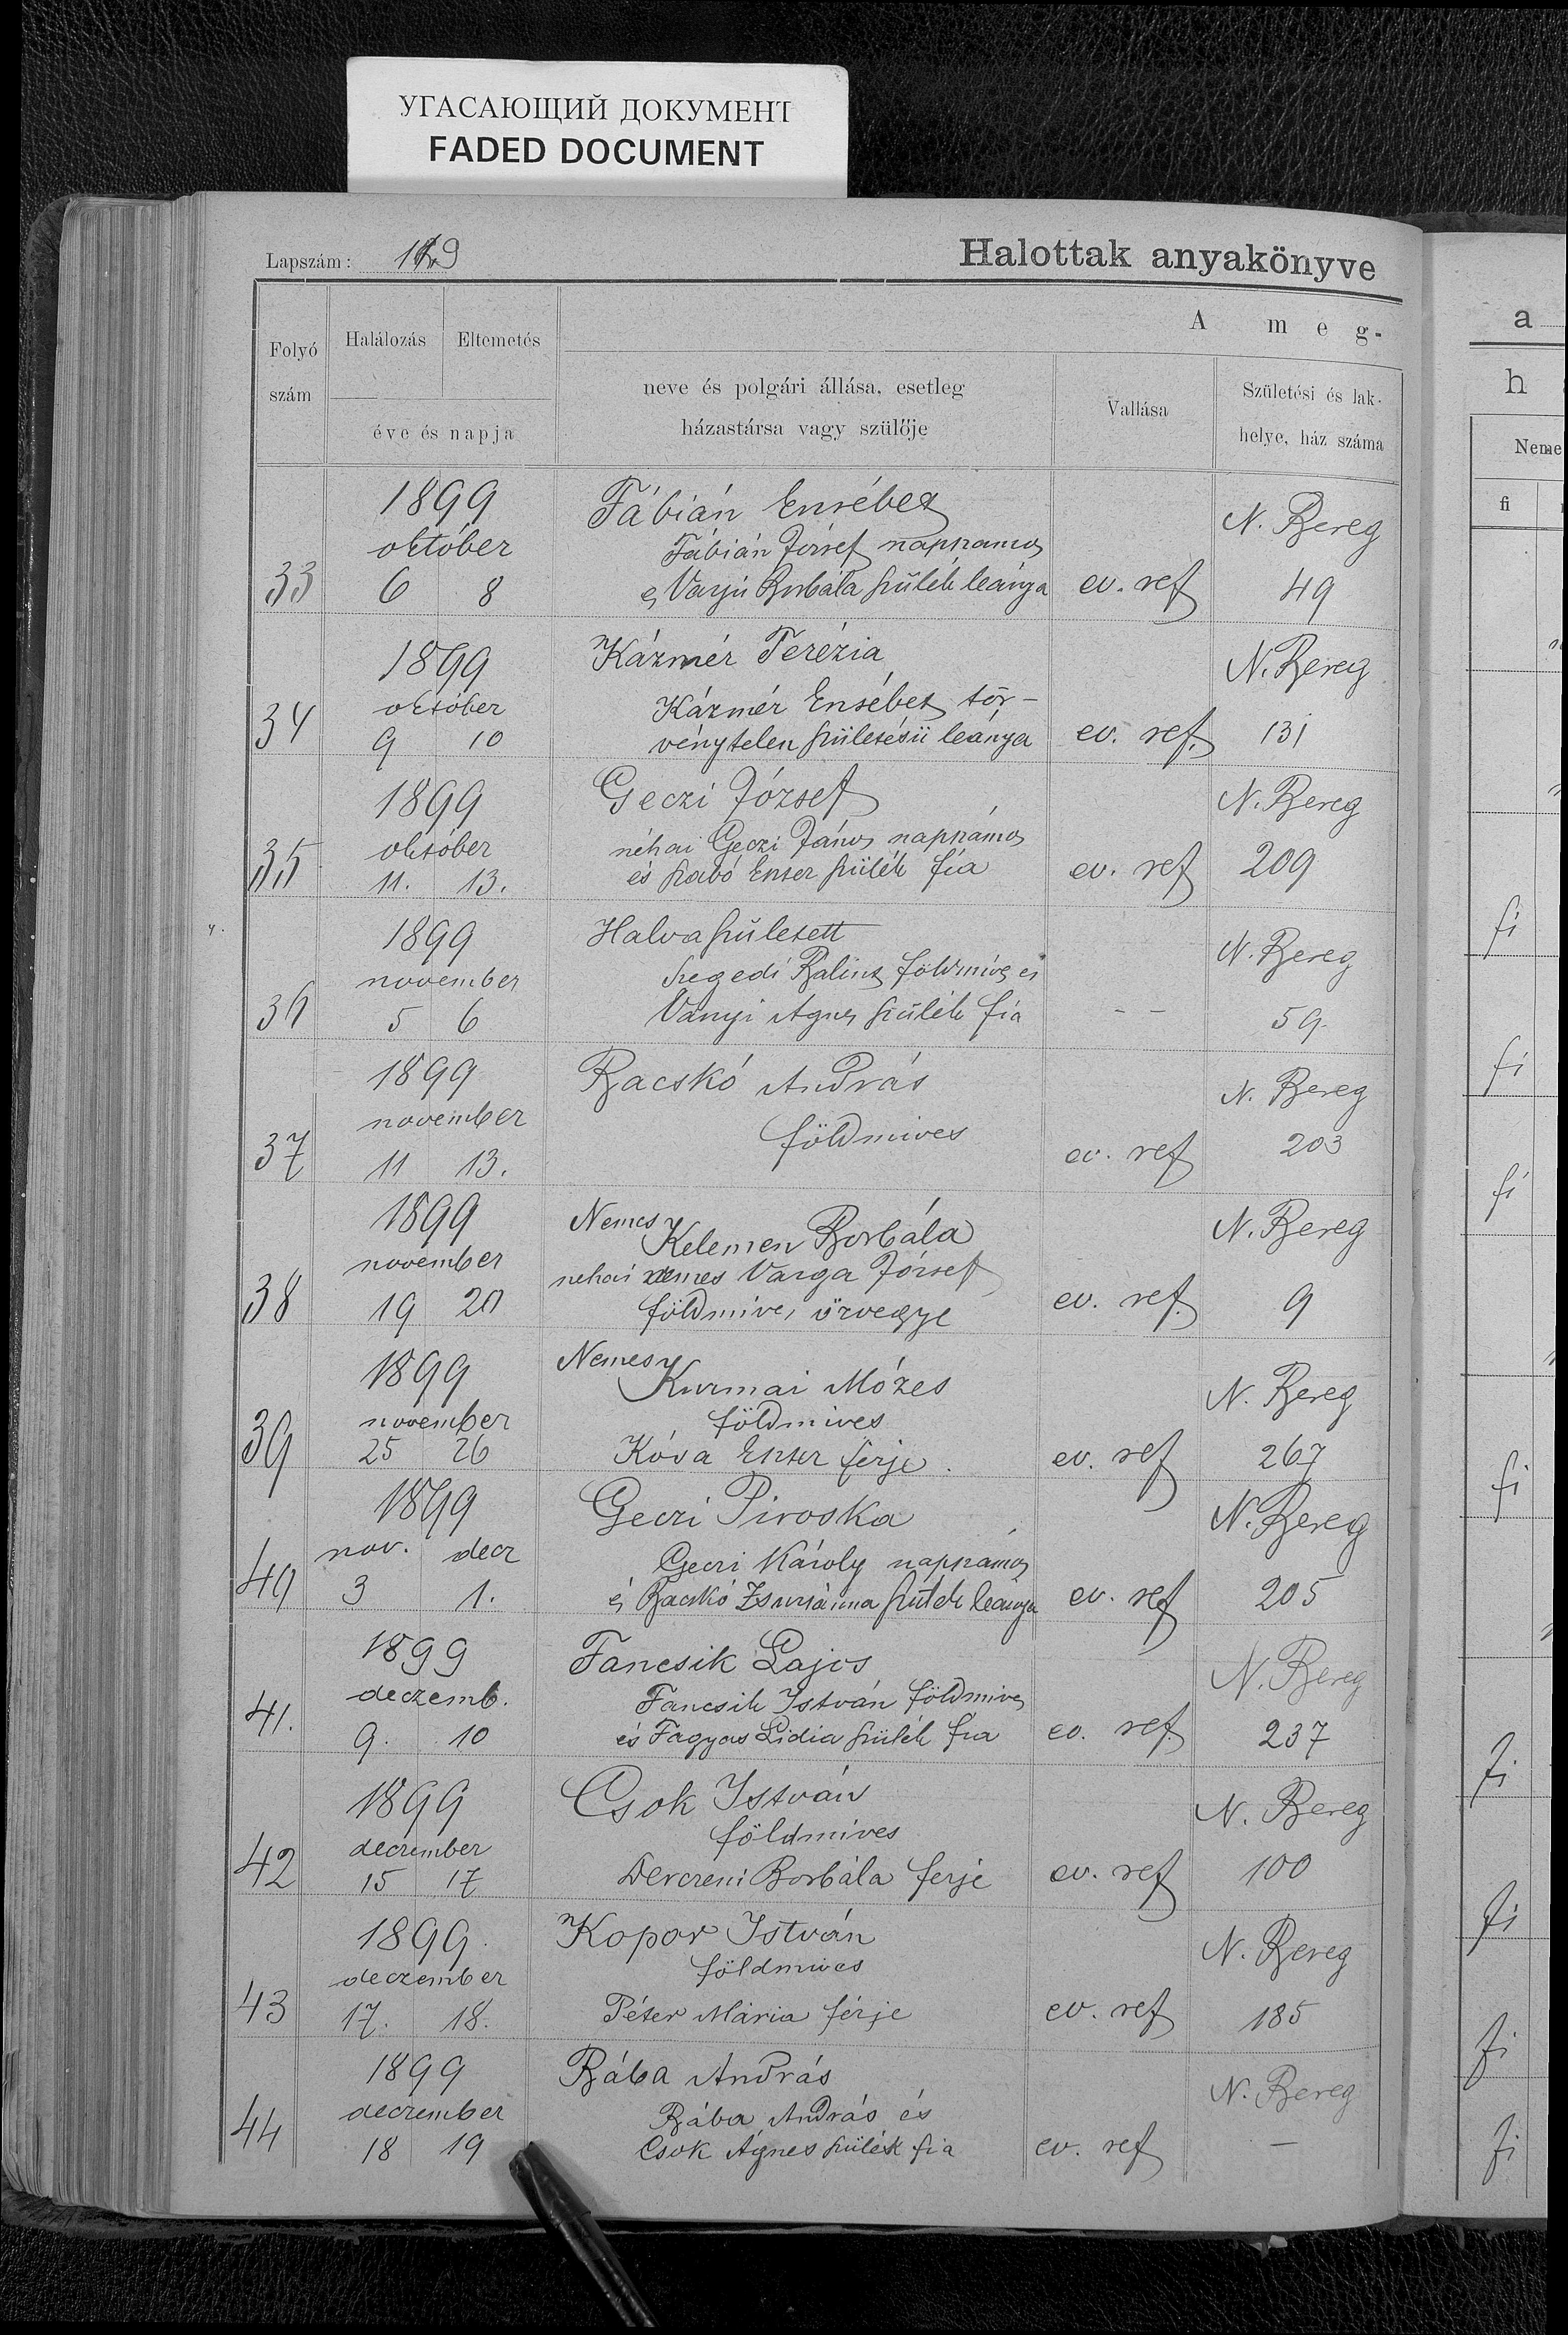 УГАСАЮЩИЙ ДОКУМЕНТ
FADED DOCUMENT
Lapszám: 119
Halottak anyakönyve
Folyó szám
Halálozás
Eltemetés
éve és napja
A meg-
neve és polgári állása, esetleg
házastársa vagy szülője
Vallása
Születési és lak-
helye, ház száma
a
h
Neme
fi
1899 Fábián Ersébet N. Bereg
október Fábián József napszámos
33 6 8 és Varjú Borbála szülék leánya ev. ref 49
1899 Kázmér Terézia N. Bereg
október Kázmér Ersébet tör-
34 9 10 vénytelen születésü leánya ev. ref. 131
1899 Geczi József N. Bereg
október néhai Geczi János napszámos
35 11. 13. és Szabó Eszter szülék fia ev. ref 209
1899 Halva született N. Bereg
november Szegedi Bálint földmives és
36 5 6 Ványi Ágnes szülék fia - - 59. fi
1899 Backó András N. Bereg
november földmives
37 11 13. ev. ref 203 fi
1899 Nemes Kelemen Borbála N. Bereg
november nehai nemes Varga József
38 19 20 földmives özvegye ev. ref. 9
1899 Nemes Kurmai Mózes N. Bereg
november földmives
39 25 26 Kósa Eszter férje. ev. ref 267 fi
1899 Geczi Piroska N. Bereg
nov. decz Geczi Károly napszámos
40 3 1. és Backó Zsuzsánna szülék leánya ev. ref 205
1899 Fancsik Lajos N. Bereg
deczemb. Fancsik István földmives
41. 9. 10 és Fagyas Lidia szülék fia ev. ref. 237 fi
1899 Csok István N. Bereg
deczember földmives
42 15 17 Derczeni Borbála ferje ev. ref 100 fi
1899. Kopor István N. Bereg
deczember földmives
43 17. 18. Péter Mária férje ev. ref 185 fi
1899 Bába András N. Bereg
deczember Bába András és
44 18 19 Csok Ágnes szülék fia ev. ref — fi